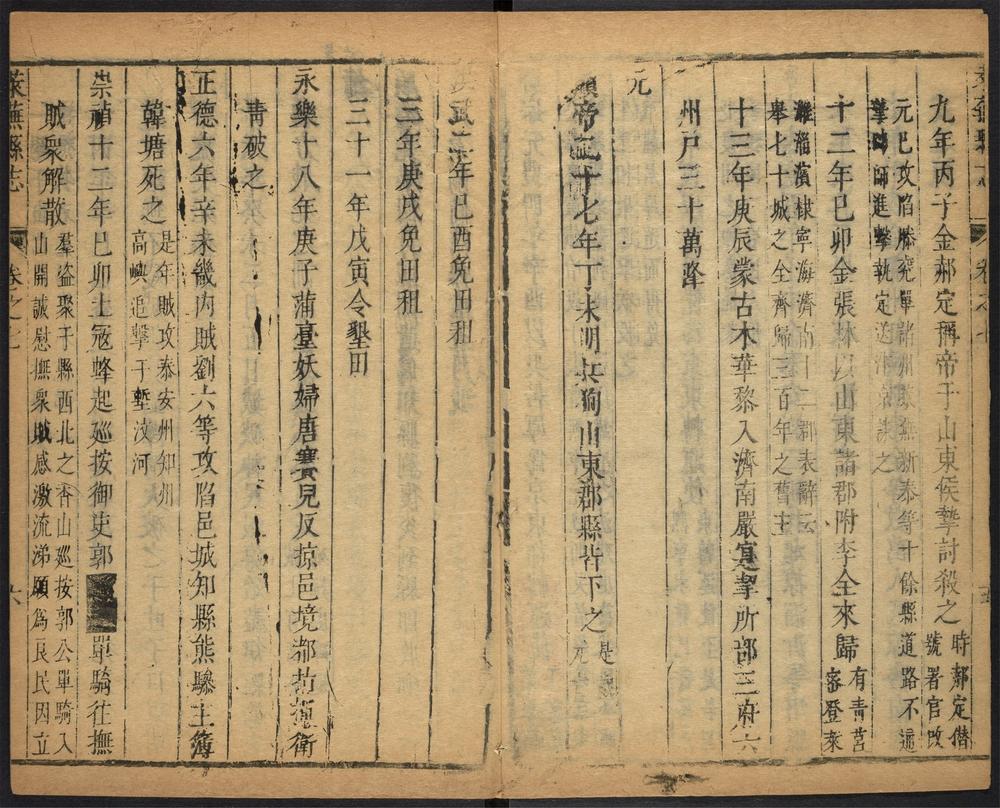 九年丙子金郝定稱帝于山東侯摯討殺之時郝定僭號署官改
元已攻陷滕兗單諸州萊蕪新泰等十餘縣道路不通
摯師進擊執定送誅之
十二年巳卯金張林以山東諸郡附李全來歸有青莒密登萊
濰淄濱棣寧海濟南二郡表辭云
舉七十城之全齊歸三百年之舊主
十三年庚辰蒙古木華黎入濟南嚴寔挈所部三府六
州戶三十萬降
元
順帝至十七年丁未明兵狥山東郡縣皆下之是
元
洪武二年巳酉免田租
三年庚戌免田租
三十一年戊寅令墾田
永樂十八年庚子蒲臺妖婦唐賽兒反掠邑境都指揮衛
青破之
正德六年辛未畿内賊劉六等攻陷邑城知縣熊驂主簿
韓塘死之是年賊攻泰安州知州
高嶼追擊于塹汶河
崇禎十二年巳卯土冦蜂起廵按御史郭單騎往撫
賊衆解散羣盗聚于縣西北之香山廵按郭公單騎入
山開誠慰撫衆賊感激流涕願爲良民因立
萊蕪縣志
卷之七
六